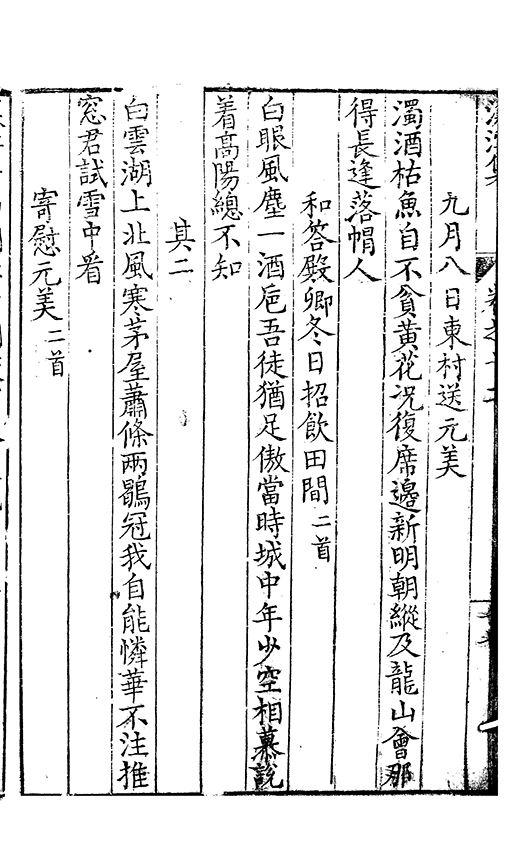 九月八日東村送元美
濁酒枯魚自不貧黃花況復席邊新明朝縱及龍山會那
得長逢落帽人
和答殿卿冬日招飲田間二首
白眼風塵一酒巵吾徒猶足傲當時城中年少空相慕說
着高陽總不知
其二
白雲湖上北風寒茅屋蕭條兩鶡冠我自能憐華不注推
窓君試雪中看
寄慰元美二首